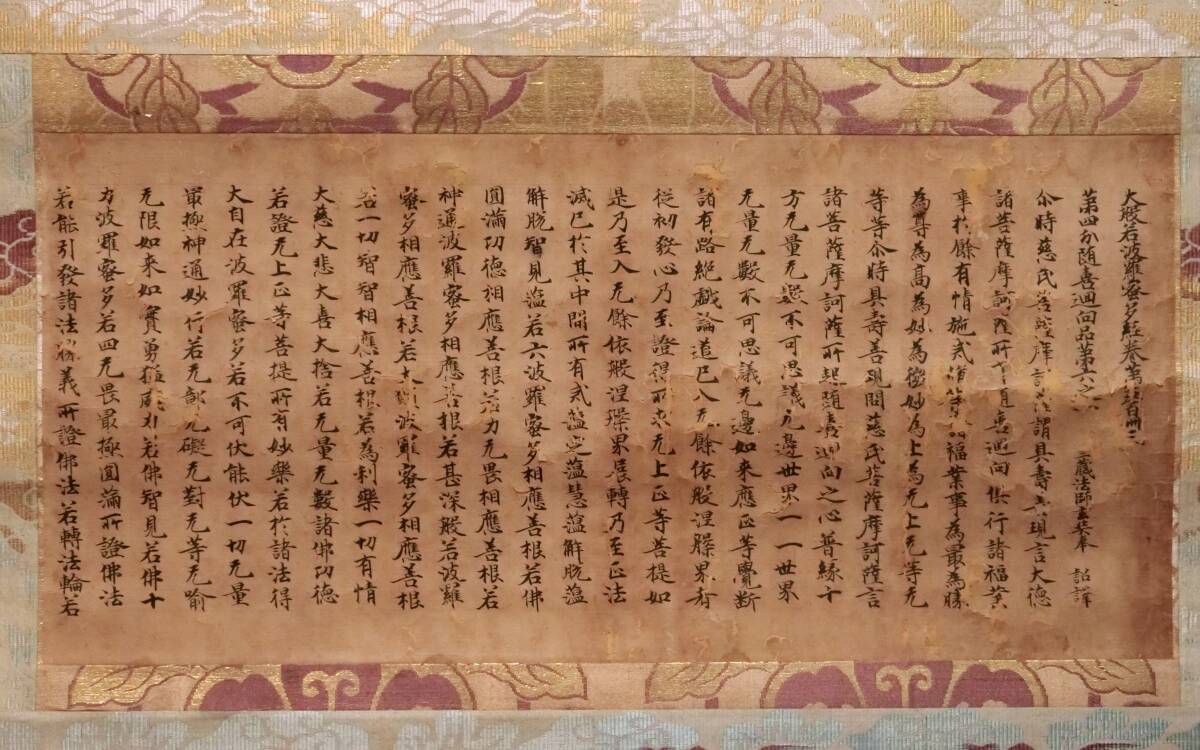 大般若波羅蜜多經卷第五百卌三
第四分隨喜迴向品第六之一 三藏法師玄奘奉 詔譯
尒時慈氏菩薩摩訶薩謂具壽善現言大德
諸菩薩摩訶薩所有隨喜迴向俱行諸福業
事於餘有情施戒修等諸福業事為最為勝
為尊為高為妙為微妙為上為无上无等无
等等尒時具壽善現問慈氏菩薩摩訶薩言
諸菩薩摩訶薩所起隨喜迴向之心普緣十
方无量无數不可思議无邊世界一一世界
无量无數不可思議无邊如來應正等覺斷
諸有路絕戲論道已入无餘依般涅槃界者
從初發心乃至證得所求无上正等菩提如
是乃至入无餘依般涅槃界展轉乃至正法
滅已於其中間所有戒蘊定蘊慧蘊解脫蘊
解脫智見蘊若六波羅蜜多相應善根若佛
圓滿功德相應善根若力无畏相應善根若
神通波羅蜜多相應善根若甚深般若波羅
蜜多相應善根若大願波羅蜜多相應善根
若一切智智相應善根若為利樂一切有情
大慈大悲大喜大捨若无量无數諸佛功德
若證无上正等菩提所有妙樂若於諸法得
大自在波羅蜜多若不可伏能伏一切无量
冣極神通妙行若无鄣无礙无對无等无喻
无限如來如實勇猛威力若佛智見若佛十
力波羅蜜多若四无畏最極圓滿所證佛法
若能引發諸法勝義所證佛法若轉法輪若